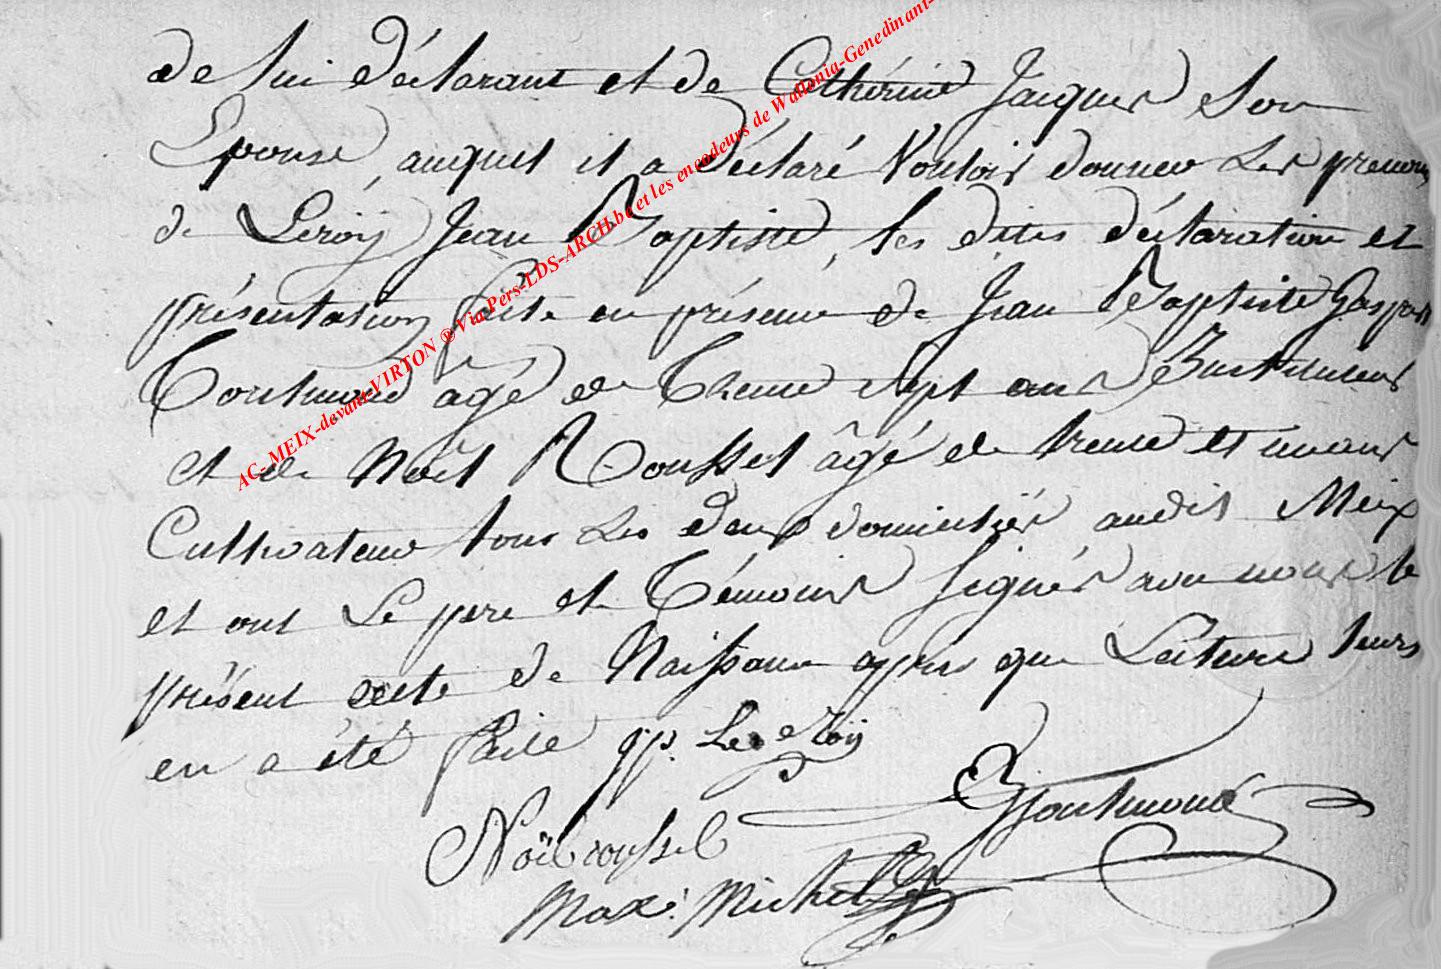 de lui déclarant et de Cathérine Jacques Son
Epouse, auquel il a déclaré Vouloir donner Les prenoms
de Leroij Jean Baptiste, les dites déclaration et
présentation faite en présence de Jean Baptiste Gaspar
agé de Trente sept ans Instituteur
et de Noël Roussel âgé de trente et un ans
Cultivateur tous Les deux domiciliés audit Meix
et ont Le pere et Témoins Signés avec nous le
présent acte de Naissance aprés que Lecture leurs
en a été faite Le Roÿ
Noël roussel
Max: Michel
AC-MEIX-devant-VIRTON ® Via Pers-LDS-ARCH.be et les encodeurs de Wallonia-Genedinant-